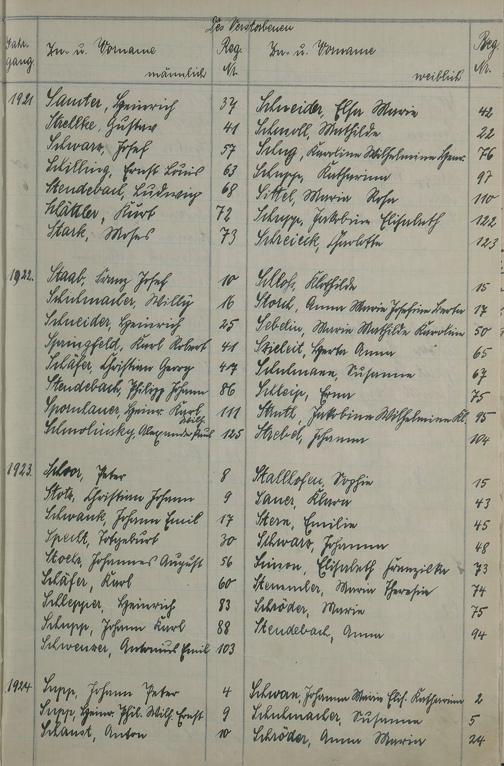 Des Verstorbenen
Jahrgang Zu- u. Vorname männlich Reg. Nr. Zu- u. Vorname weiblich Reg. Nr.
1921 Samter, Heinrich 37 Schneider, Elsa Marie 42
Strellke, Gustav 41 Schmoll, Mathilde 22
Schwarz, Josef 57 Schug, Karoline Wilhelmine 76
Schilling, Ernst Louis 63 Schupp, Katharina 97
Stendebach, Ludwig 68 Sittel, Maria Rosa 110
Schättler, Kurt 72 Schupp, Jakobine Elisabeth 122
Stark, Moses 73 Schreieck, Charlotte 123
1922. Staab, Franz Josef 10 Schloß, Klothilde 15
Schuhmacher, Willy 16 Storch, Anna Maria Josefine Berta 17
Schneider, Heinrich 25 Sebelin, Marie Mathilde Karoline 50
Springfeld, Karl Robert 41 Szieleit, Herta Anna 65
Schäfer, Christian Georg 47 Schulmann, Susanne 67
Stendebach, Philipp Johann 86 Erna 75
Heinr. Karl Wilh. 111 Jakobine Wilhelmine Kl. 95
Schmolinsky, Alexander Paul 125 Strebel, Johanna 104
1923. Schorr, Peter 8 Stalllhofen, Sophie 15
Stotz, Christian Johann 9 Sauer, Klara 43
Schwank, Johann Emil 17 Stern, Emilie 45
Specht, Totgeburt 30 Schwarz, Johanna 48
Stoehr, Johannes August 56 Simon, Elisabeth Franziska 73
Schäfer, Karl 60 Stemmler, Maria Theresia 74
Schlepper, Heinrich 83 Schröder, Marie 75
Schupp, Johann Karl 88 Stendebach, Anna 94
Schwenzer, Antonius Emil 103
1924 Supp, Johann Peter 4 Schwan, Johanna Maria Elis. Katharina 2
Supp, Heinr. Phil. Wilh. Ernst 9 Schuhmacher, Susanna 5
Schaust, Anton 10 Schröder, Anna Maria 24